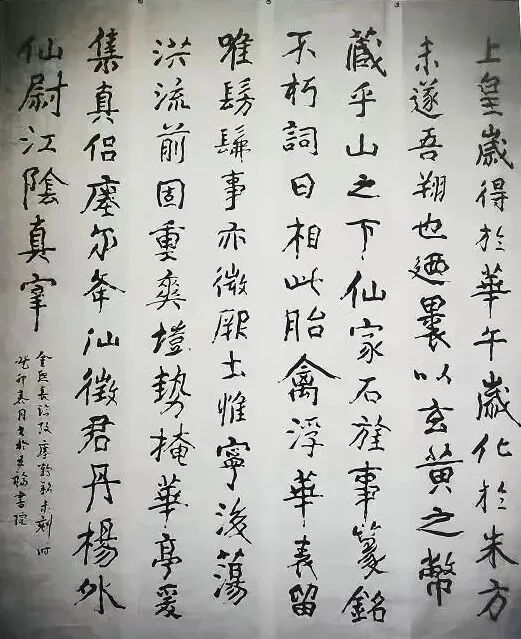 上皇歲得於華午歲化於朱方
未遂吾翔也廼裹以玄黄之幣
藏乎山之下仙家石旌事篆銘
不朽詞曰相此胎禽浮華表留
唯髣髴事亦微厥土惟寧後蕩
洪流前固重爽塏勢掩華亭爰
集真侶瘞尔夅汕徵君丹楊外
仙尉江陰真宰
癸卯春月書於書院